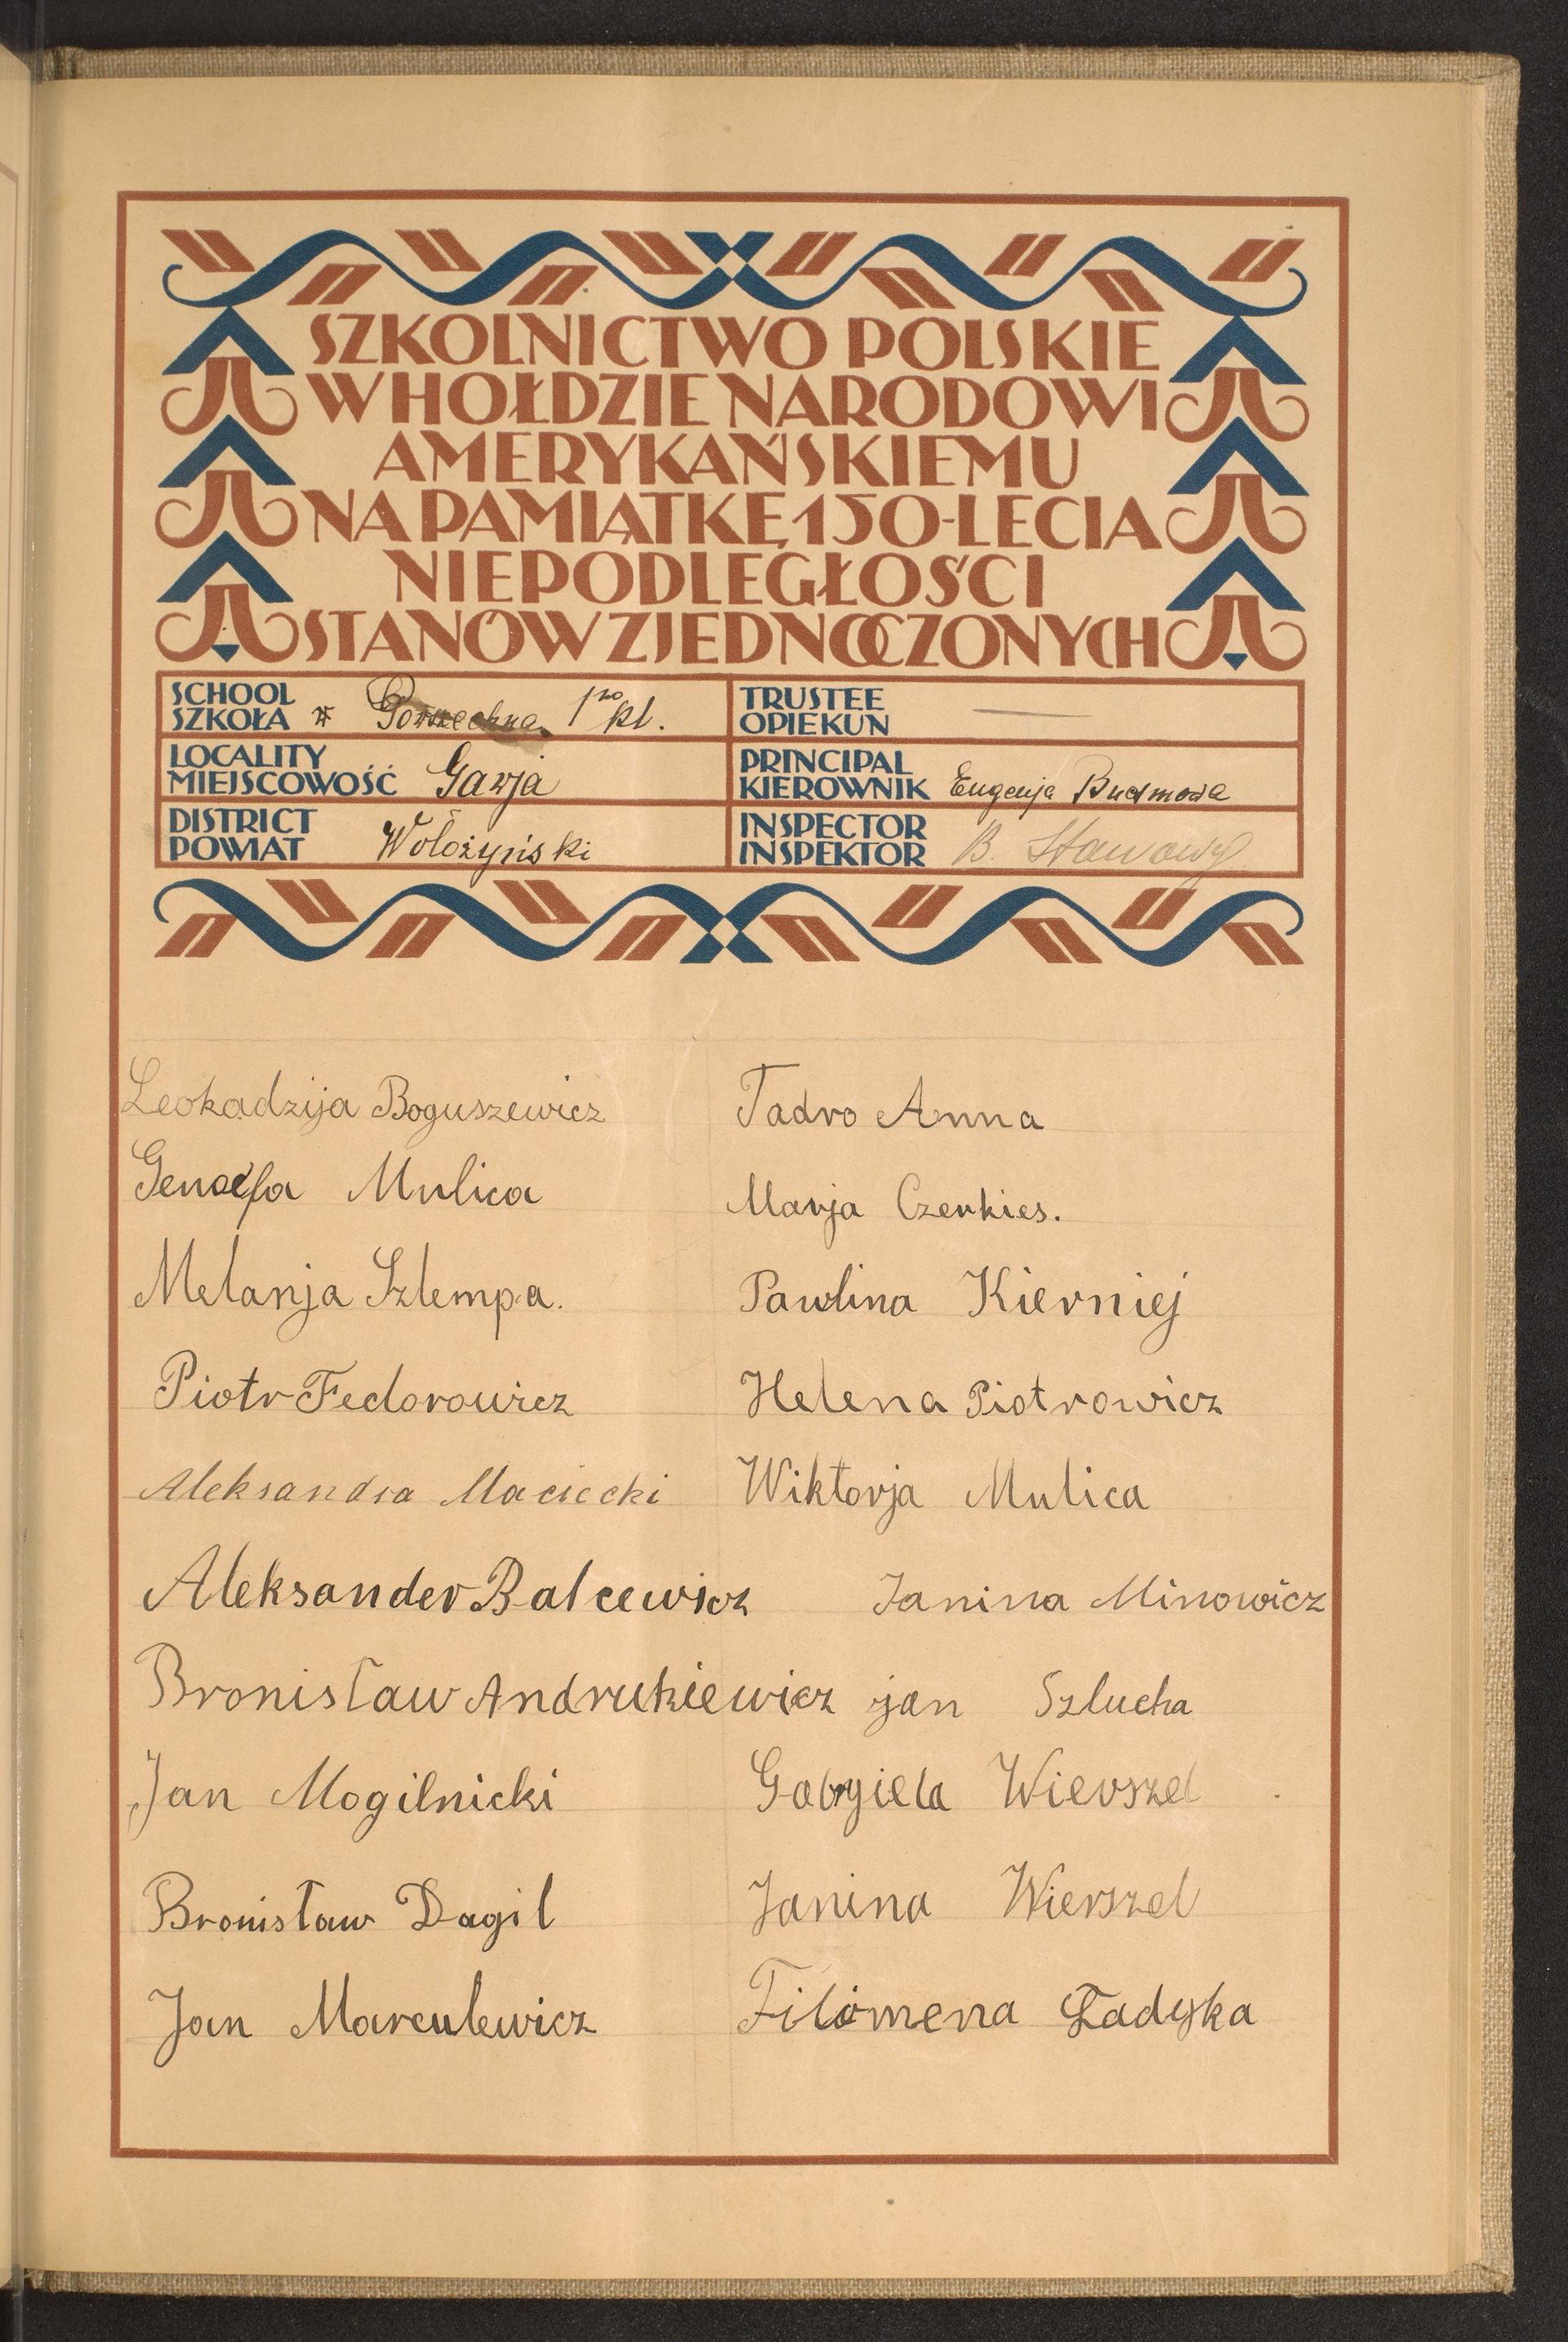 SZKOLNICTWO POLSKIE
W HOŁDZIE NARODOWI
AMERYKAŃSKIEMU
NA PAMIĄTKĘ 150-LECIA
NIEPODLEGŁOŚCI
STANÓW ZJEDNOCZONYCH
SCHOOL
SZKOŁA Powszechna 1no kl.
TRUSTEE
OPIEKUN
LOCALITY
MIEJSCOWOŚĆ Gawja
PRINCIPAL
KIEROWNIK Eugenja
DISTRICT
POWIAT Wołożyński
INSPECTOR
INSPEKTOR B. Stawowy
Leokadzija Boguszewicz
Genoefa Mulica
Melanja Szlempa.
Piotr Fedorowicz
Aleksandra Maciecki
Aleksander Balcewicz
Bronisław Andrukiewicz
Jan Mogilnicki
Bronisław Dagil
Jan Marculewicz
Tadro Anna
Marja Czerkies.
Pawlina Kierniej
Helena Piotrowicz
Wiktorja Mulica
Janina Minowicz
jan Szlucha
Gabryiela Wierszel
Janina Wierszel
Filomena Ładyka